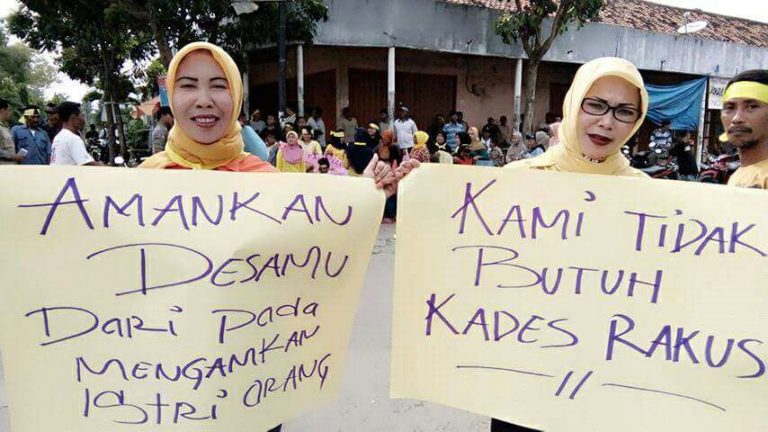 AMANKAN
DESAMU
DARI PADA
MENGAMKAN
ISTRI ORANG
KAMI TIDAK
BUTUH
KADES RAKUS